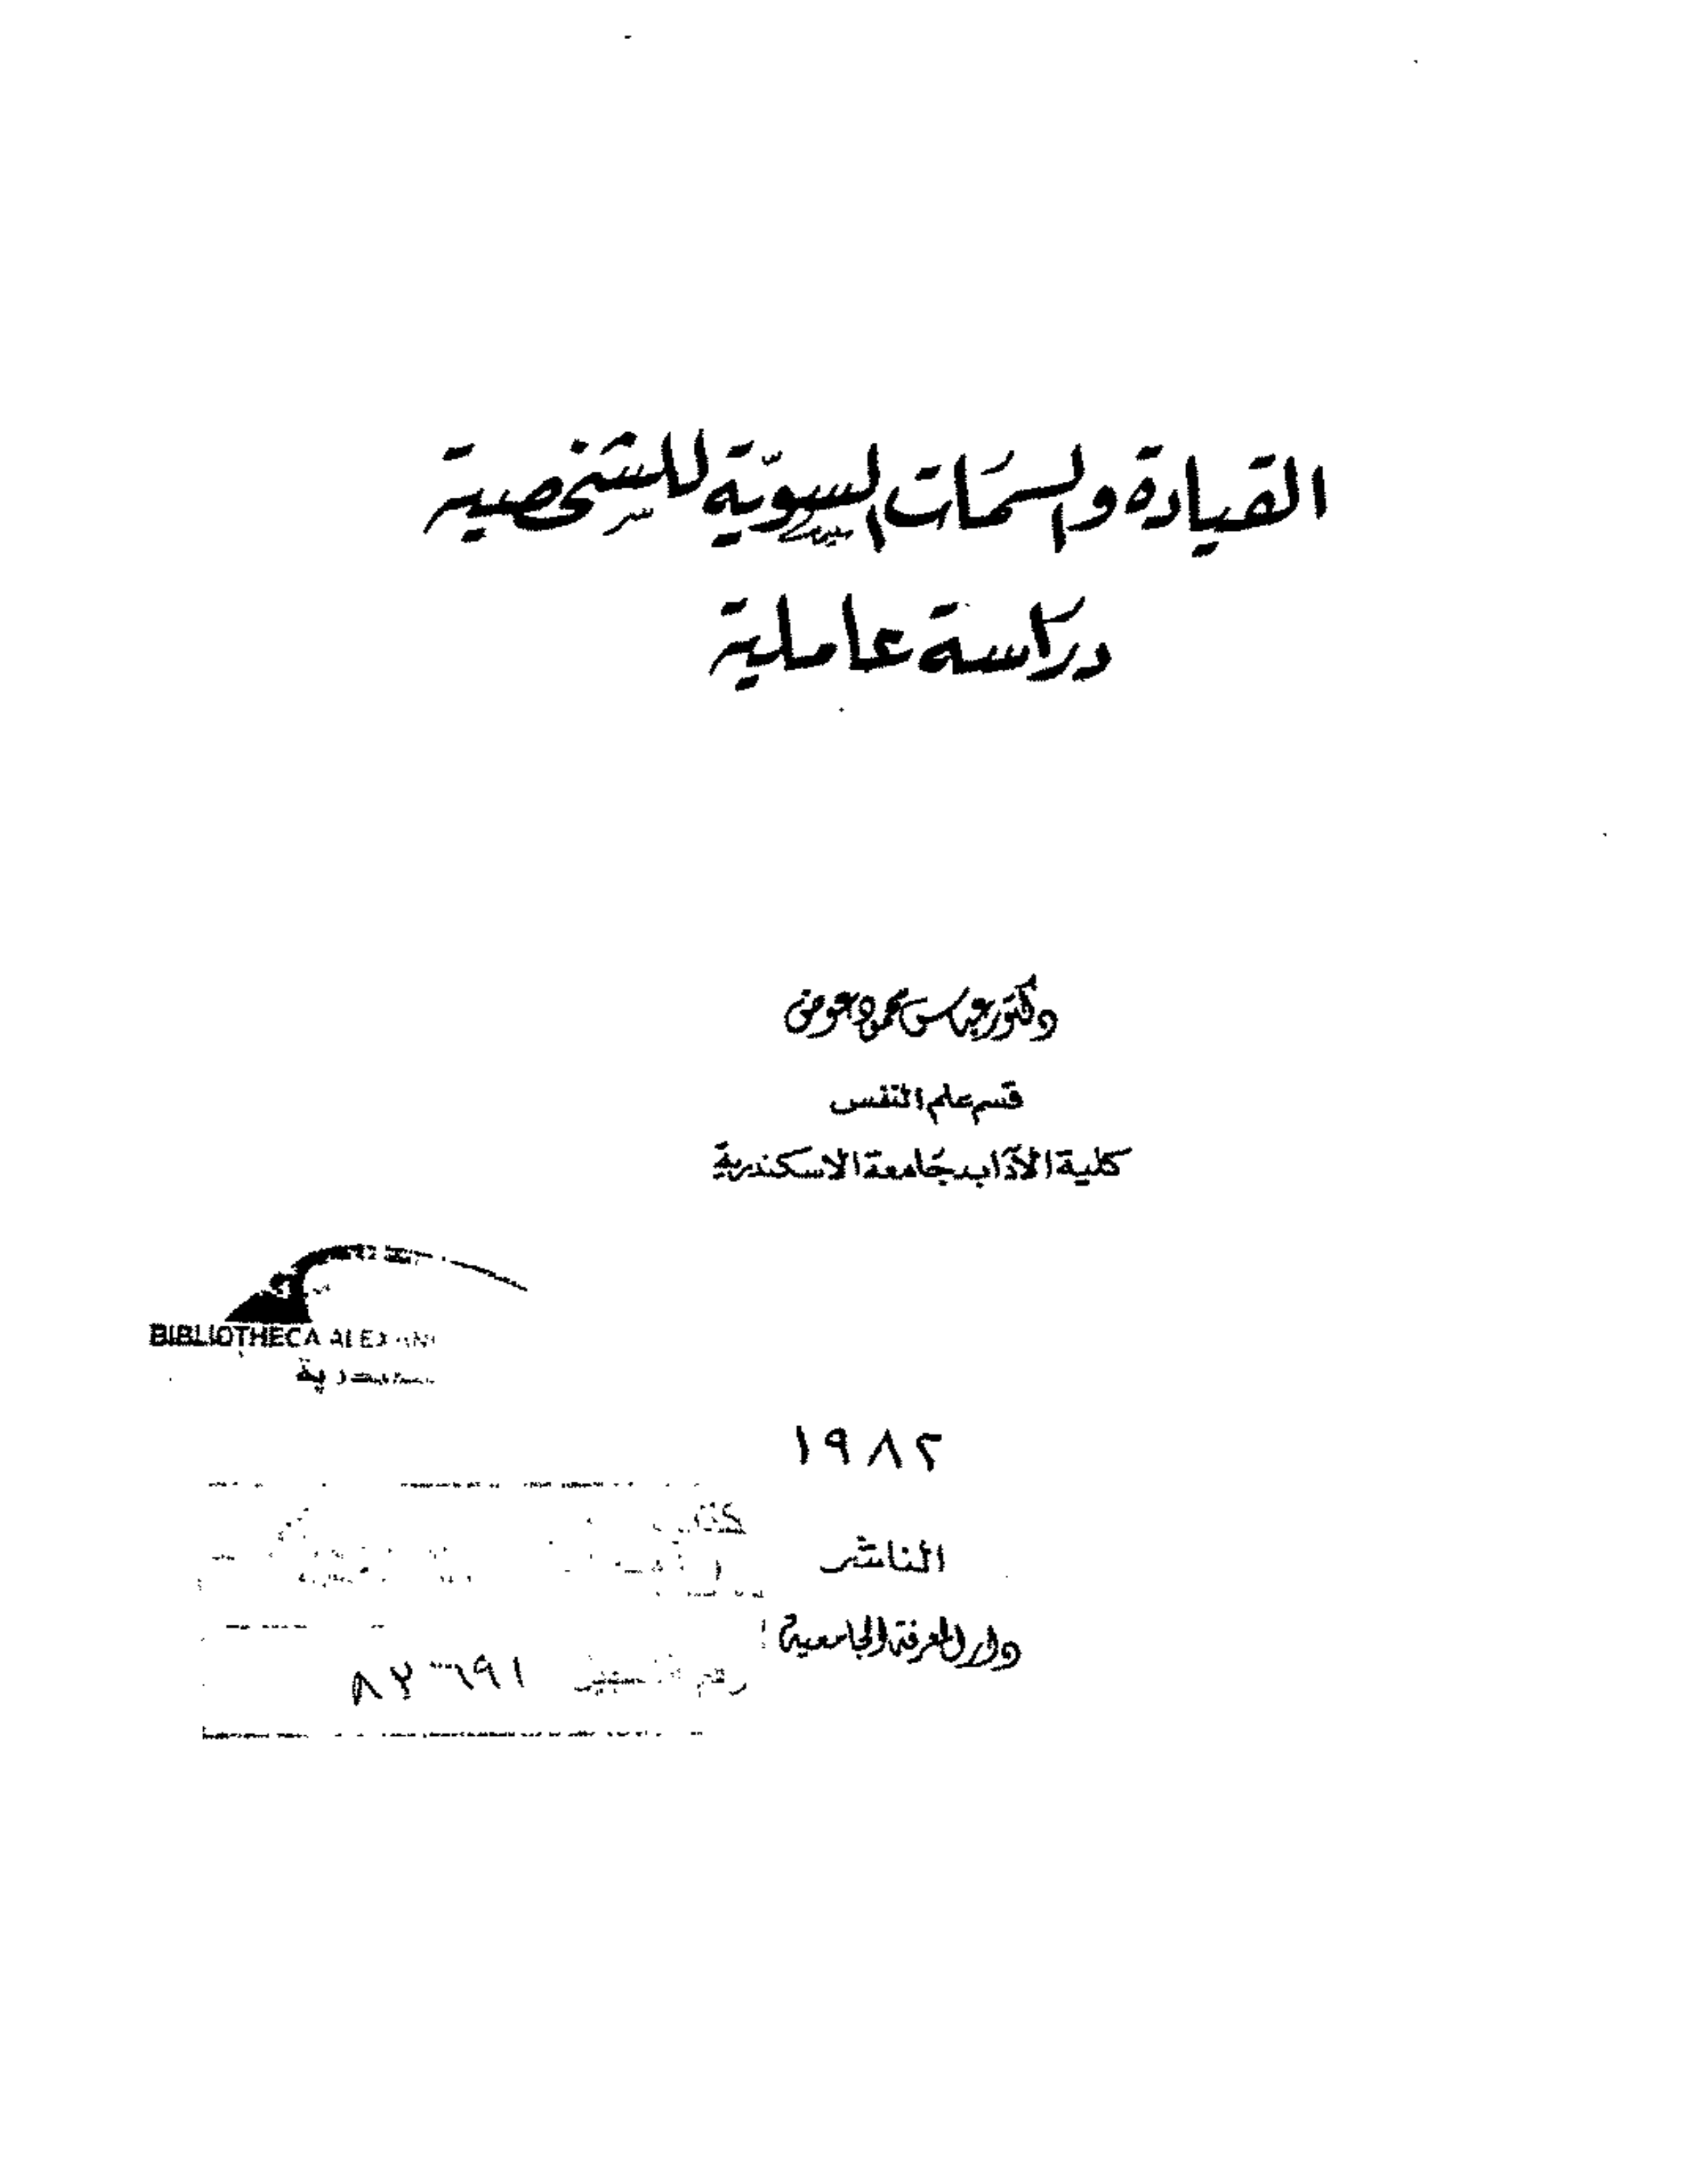 القيادة والسمات السوية للشخصية
دراسة عاملية
دكتور عباس محمود عوض
قسم علم النفس
كلية الآداب جامعة الاسكندرية
BIBLIOTHECA ALEXAN
١٩٨٢
الناشر
دار المعرفة الجامعية
رقم